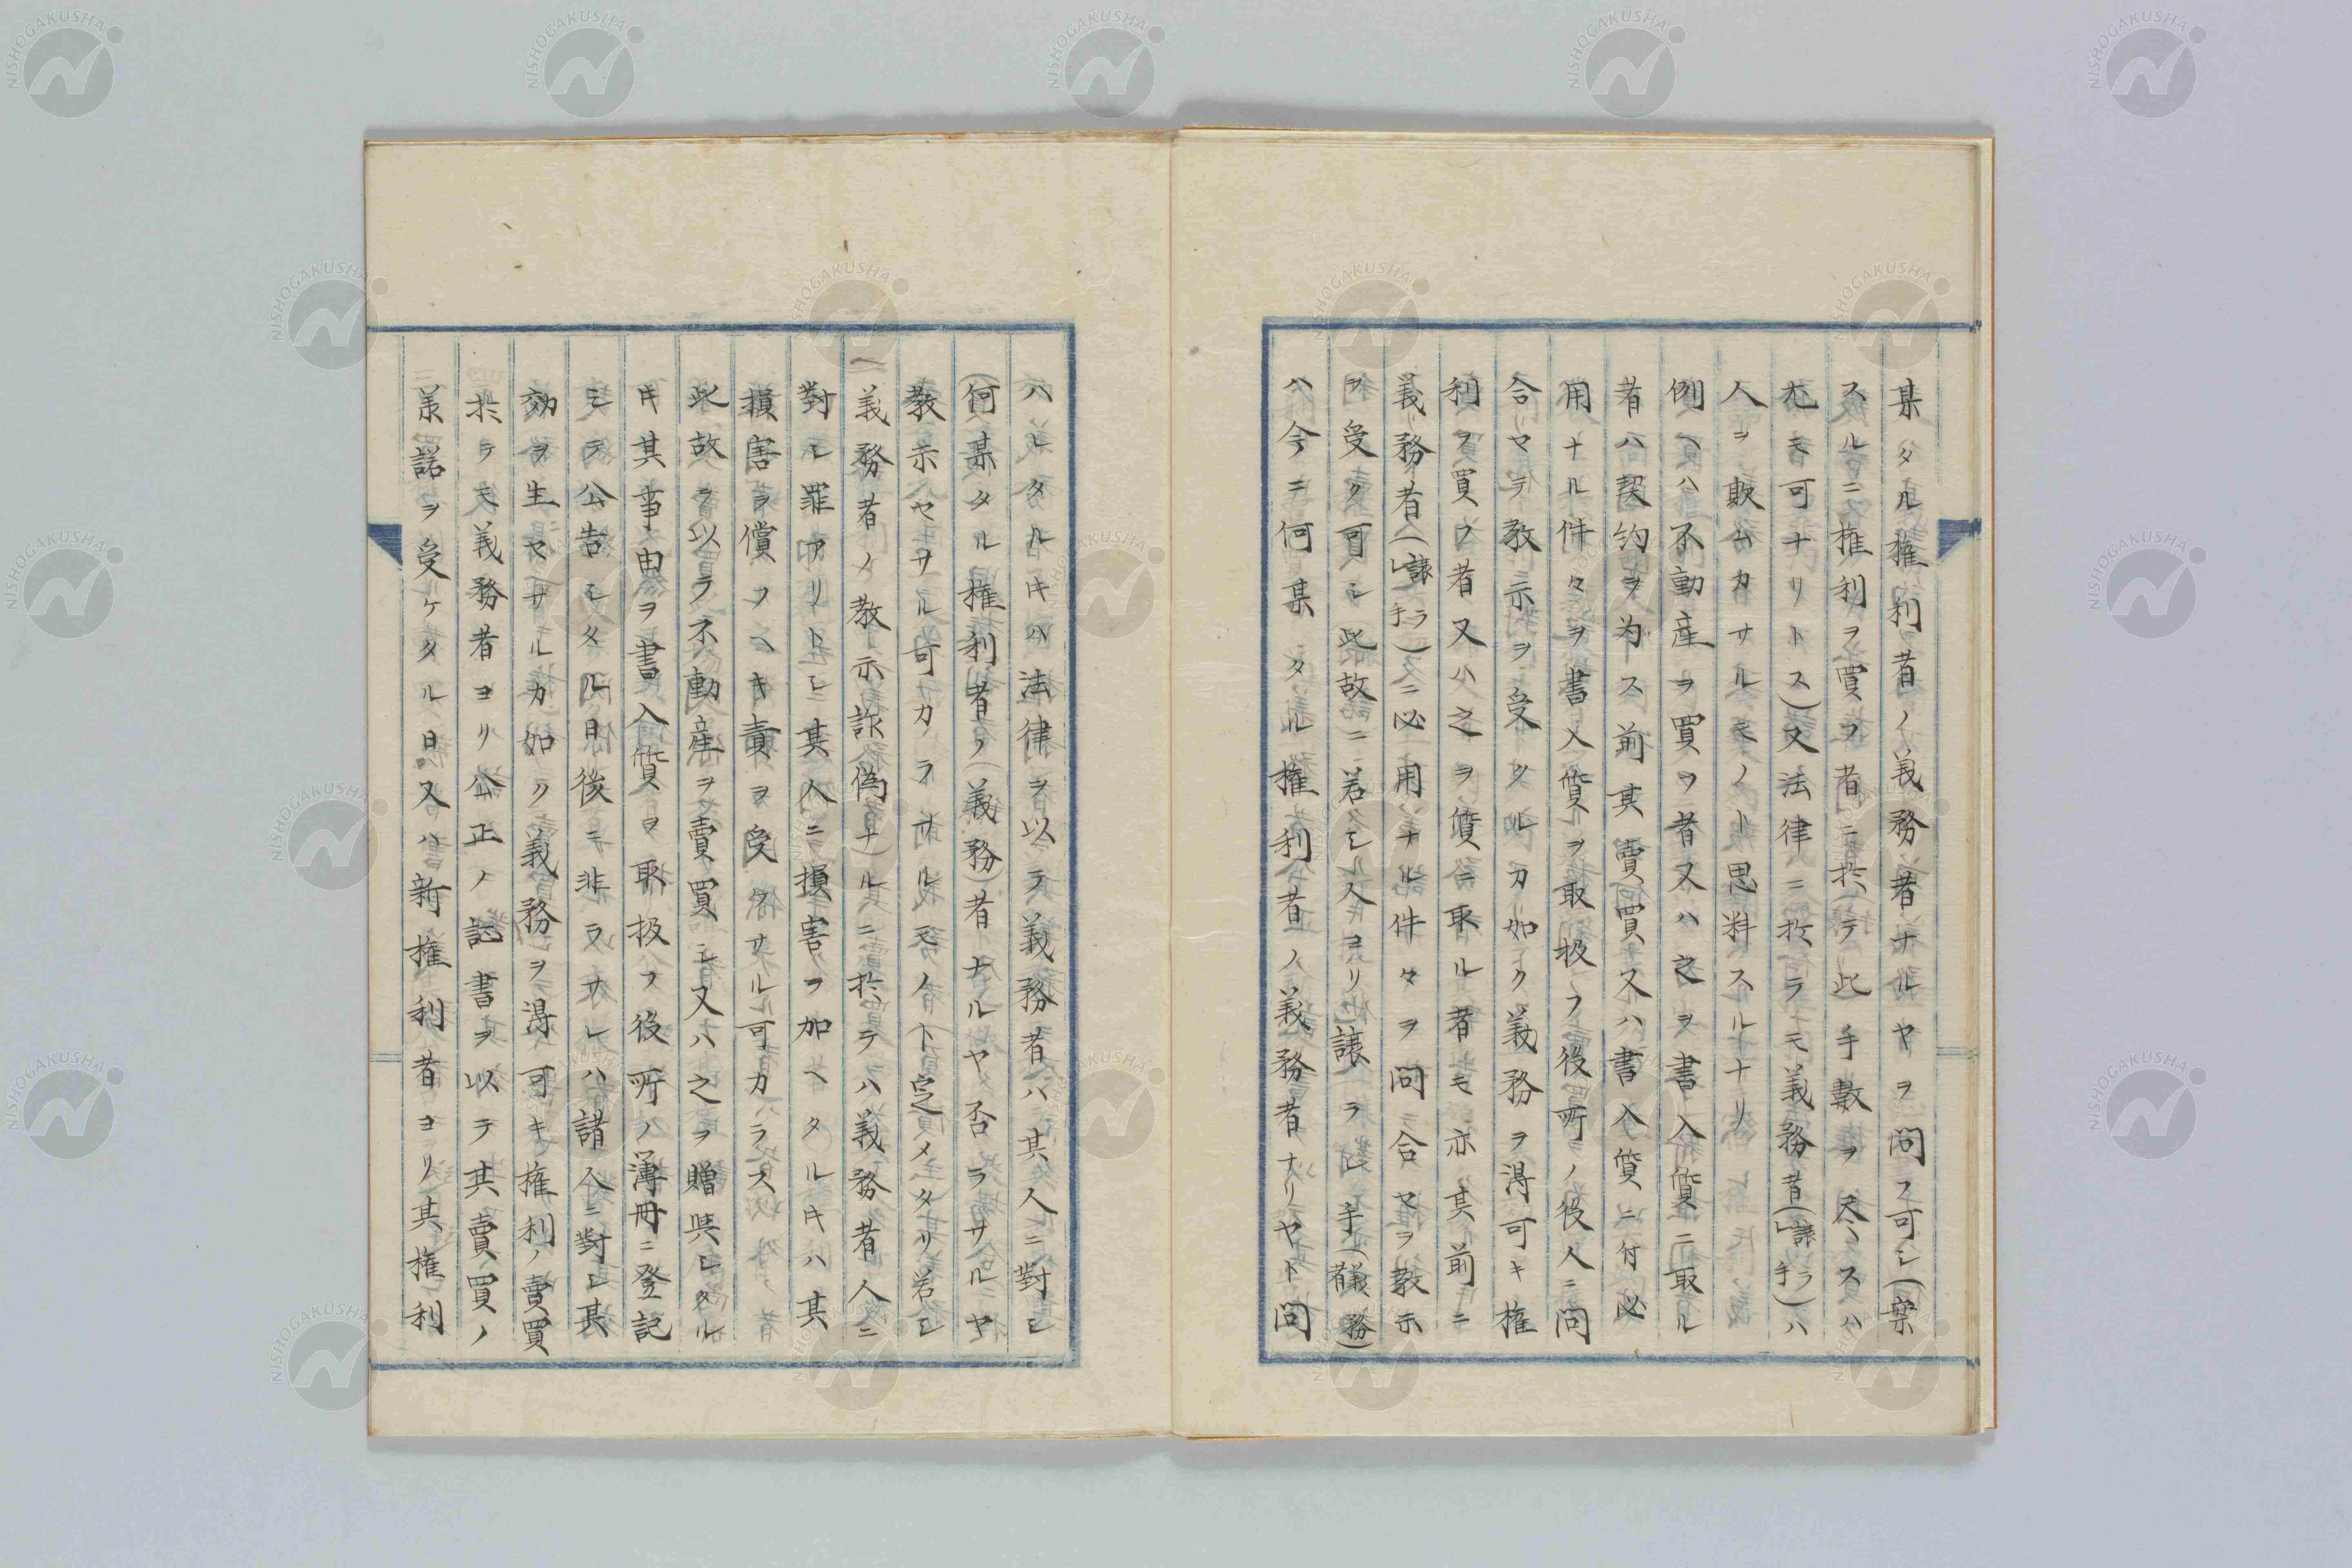 某タル権利者ノ義務者ナルヤヲ問フ可シ(案
スルニ権利ヲ買フ者ニ於テ此手數ヲ尽スハ
尤モ可ナリトス)又法律ニ於テモ義務者(譲ラレ手)ハ
人ヲ欺ムカサルモノト思料スルナリ
例ヘハ不動産ヲ買フ者又ハ之ヲ書入質ニ取ル
者ハ契約ヲ为ス前其賣買又ハ書入質ニ付必
用ナル件々ヲ書入質ヲ取扱フ役所ノ役人ニ問
合ワセテ教示ヲ受クルカ如ク義務ヲ得可キ權
利ヲ買フ者又ハ之ヲ質ニ取ル者モ亦其前ニ
義務者(譲ラレ手)ニ必用ナル件々ヲ問合セヲ教示
ヲ受ク可シ此故ニ若シ人ヨリ譲ラレ手(義務者)
ハ今ニ何某タル権利者ノ義務者ナリヤト問
ハレタルキハ法律ヲ以テ義務者ハ其人ニ對シ
(何某タル権利者ノ義務)者ナルヤ否ラサルニヤ
教示セサル可カラサルモノト定メタリ若シ
義務者ノ教示詐偽ナルニ於テハ義務者人ニ
對シ罪アリトシ其人ニ損害ヲ加ヘタルキハ其
損害ヲ償フヘキ責ヲ受ケサル可カラス
此故ヲ以テ不動産ヲ賣買シ又ハ之ヲ贈與シタル
キ其事由ヲ書入質ヲ取扱フ役所ノ簿冊ニ登記
シテ公告シタル日後ニ非ラサレハ諸人ニ對シ其
効ヲ生セサルカ如ク義務ヲ得可キ権利ノ賣買
於テモ義務者ヨリ公正ノ証書ヲ以テ其賣買ノ
承諾ヲ受ケタル日又ハ新権利者ヨリ其権利
NISHOGAKUSHA